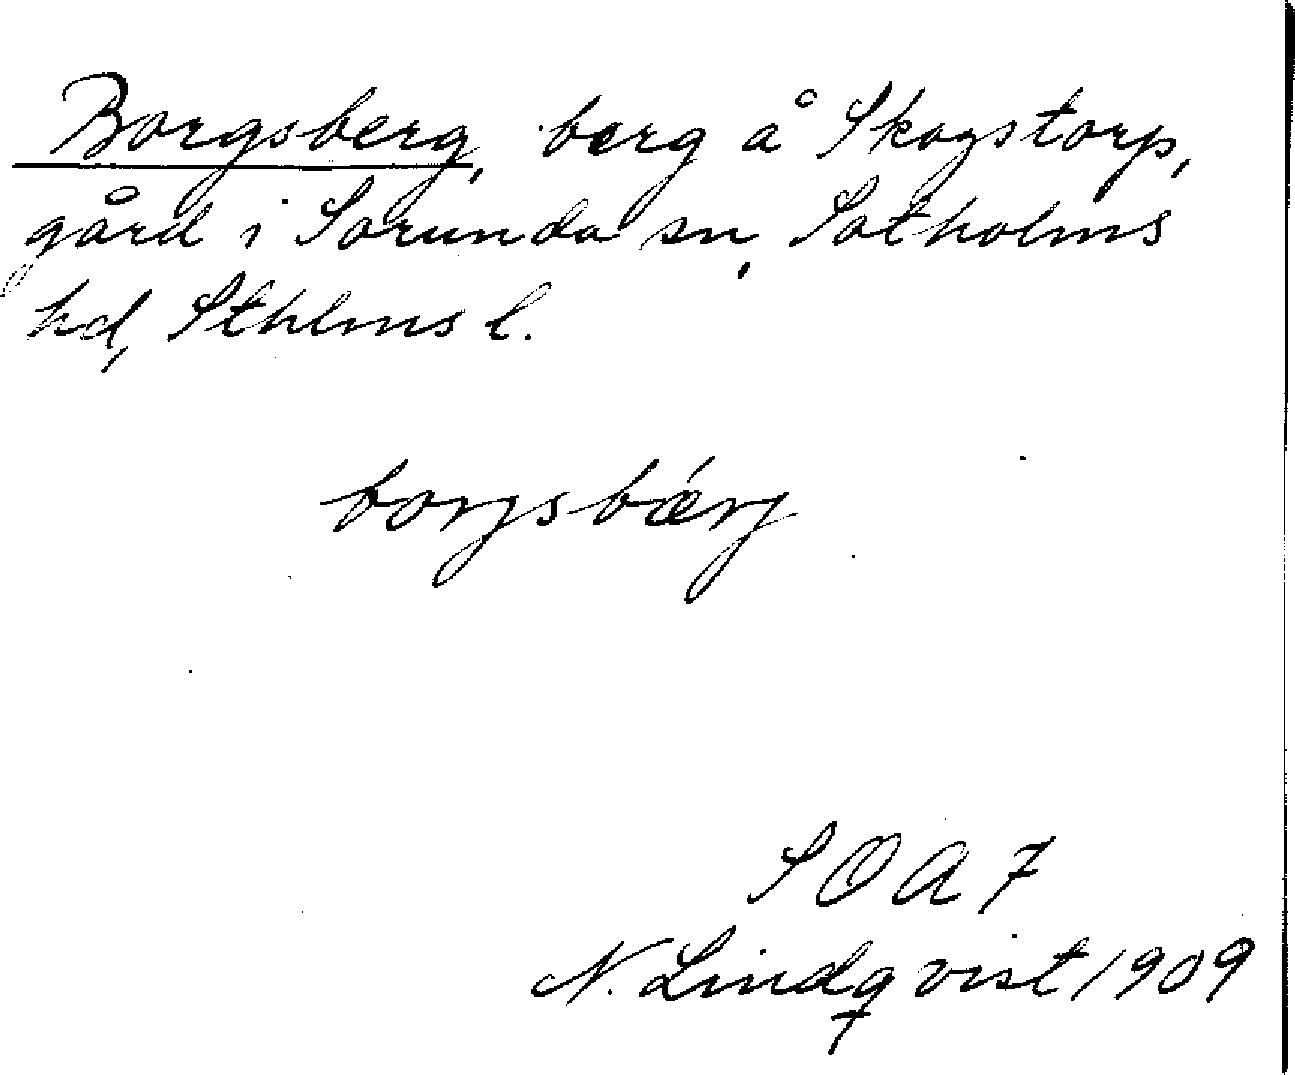 Borgsberg, berg å Skogstorp,
gård i Sorunda sn, Sotholms
hd, Sthlms l.
borjsbǽrj
SOA 7
N. Lindqvist 1909